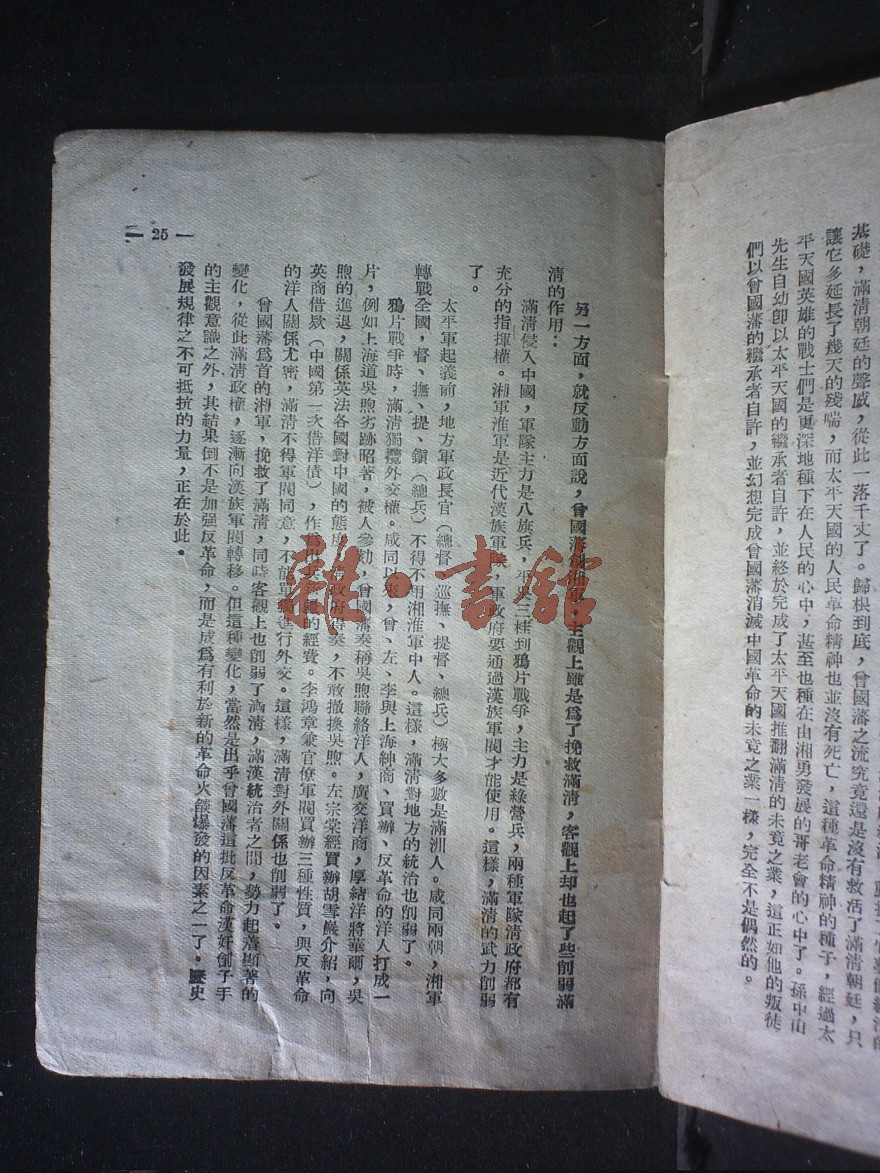 基礎，滿清朝廷的聲威，從此一落千丈了。歸根到底，曾國藩之流究竟還是沒有救活了滿清朝廷，只
讓它多延長了幾天的殘喘，而太平天國的人民革命精神也並沒有死亡，這種革命精神的種子，經過太
平天國英雄的戰士們是更深地種下在人民的心中，甚至也種在由湘勇發展的哥老會的心中了。孫中山
先生自幼卽以太平天國的繼承者自許，並終於完成了太平天國推翻滿清的未竟之業，這正如他的叛徒
們以曾國藩的繼承者自許，並幻想完成曾國藩消滅中國革命的未竟之業一樣，完全不是偶然的。
另一方面，就反動方面說，曾國藩創湘軍，主觀上雖是爲了挽救滿清，客觀上却也起了些削弱滿
清的作用：
滿清侵入中國，軍隊主力是八旗兵，平三桂到鴉片戰爭，主力是綠營兵，兩種軍隊清政府都有
充分的指揮權。湘軍淮軍是近代漢族軍隊，軍政府要通過漢族軍閥才能使用。這樣，滿清的武力削弱
了。
太平軍起義前，地方軍政長官（總督、巡撫、提督、總兵）極大多數是滿洲人。咸同兩朝，湘軍
轉戰全國，督、撫、提、鎭（總兵）不得不用湘淮軍中人。這樣，滿清對地方的統治也削弱了。
鴉片戰爭時，滿清獨攬外交權。咸同以來，曾、左、李與上海紳商、買辦、反革命的洋人打成一
片，例如上海道吳煦劣跡昭著，被人參劾，曾國藩奏稱吳煦聯絡洋人，廣交洋商，厚結洋將華爾，吳
煦的進退，關係英法各國對中國的態度，政府得奏，不敢撤換吳煦。左宗棠經買辦胡雪巖介紹，向
英商借欵（中國第一次借洋債），作爲出的經費。李鴻章兼官僚軍閥買辦三種性質，與反革命
的洋人關係尤密，滿清不得軍閥同意，不能單獨進行外交。這樣，滿清對外關係也削弱了。
曾國藩爲首的湘軍，挽救了滿清，同時客觀上也削弱了滿清，滿漢統治者之間，勢力起着顯著的
變化，從此滿清政權，逐漸向漢族軍閥轉移。但這種變化，當然是出乎曾國藩這批反革命漢奸劊子手
的主觀意識之外，其結果倒不是加强反革命，而是成爲有利於新的革命火燄爆發的因素之一了。歷史
發展規律之不可抵抗的力量，正在於此。
— 25 —
雜·書館